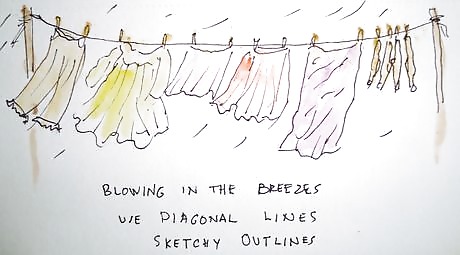 BLOWING IN THE BREEZES
USE DIAGONAL LINES
SKETCHY OUTLINES